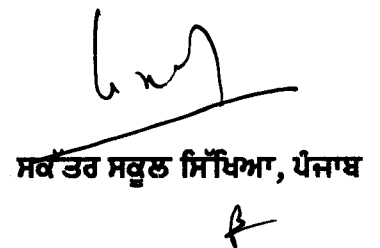 ਸਕੱਤਰ ਸਕੂਲ ਸਿੱਖਿਆ, ਪੰਜਾਬ